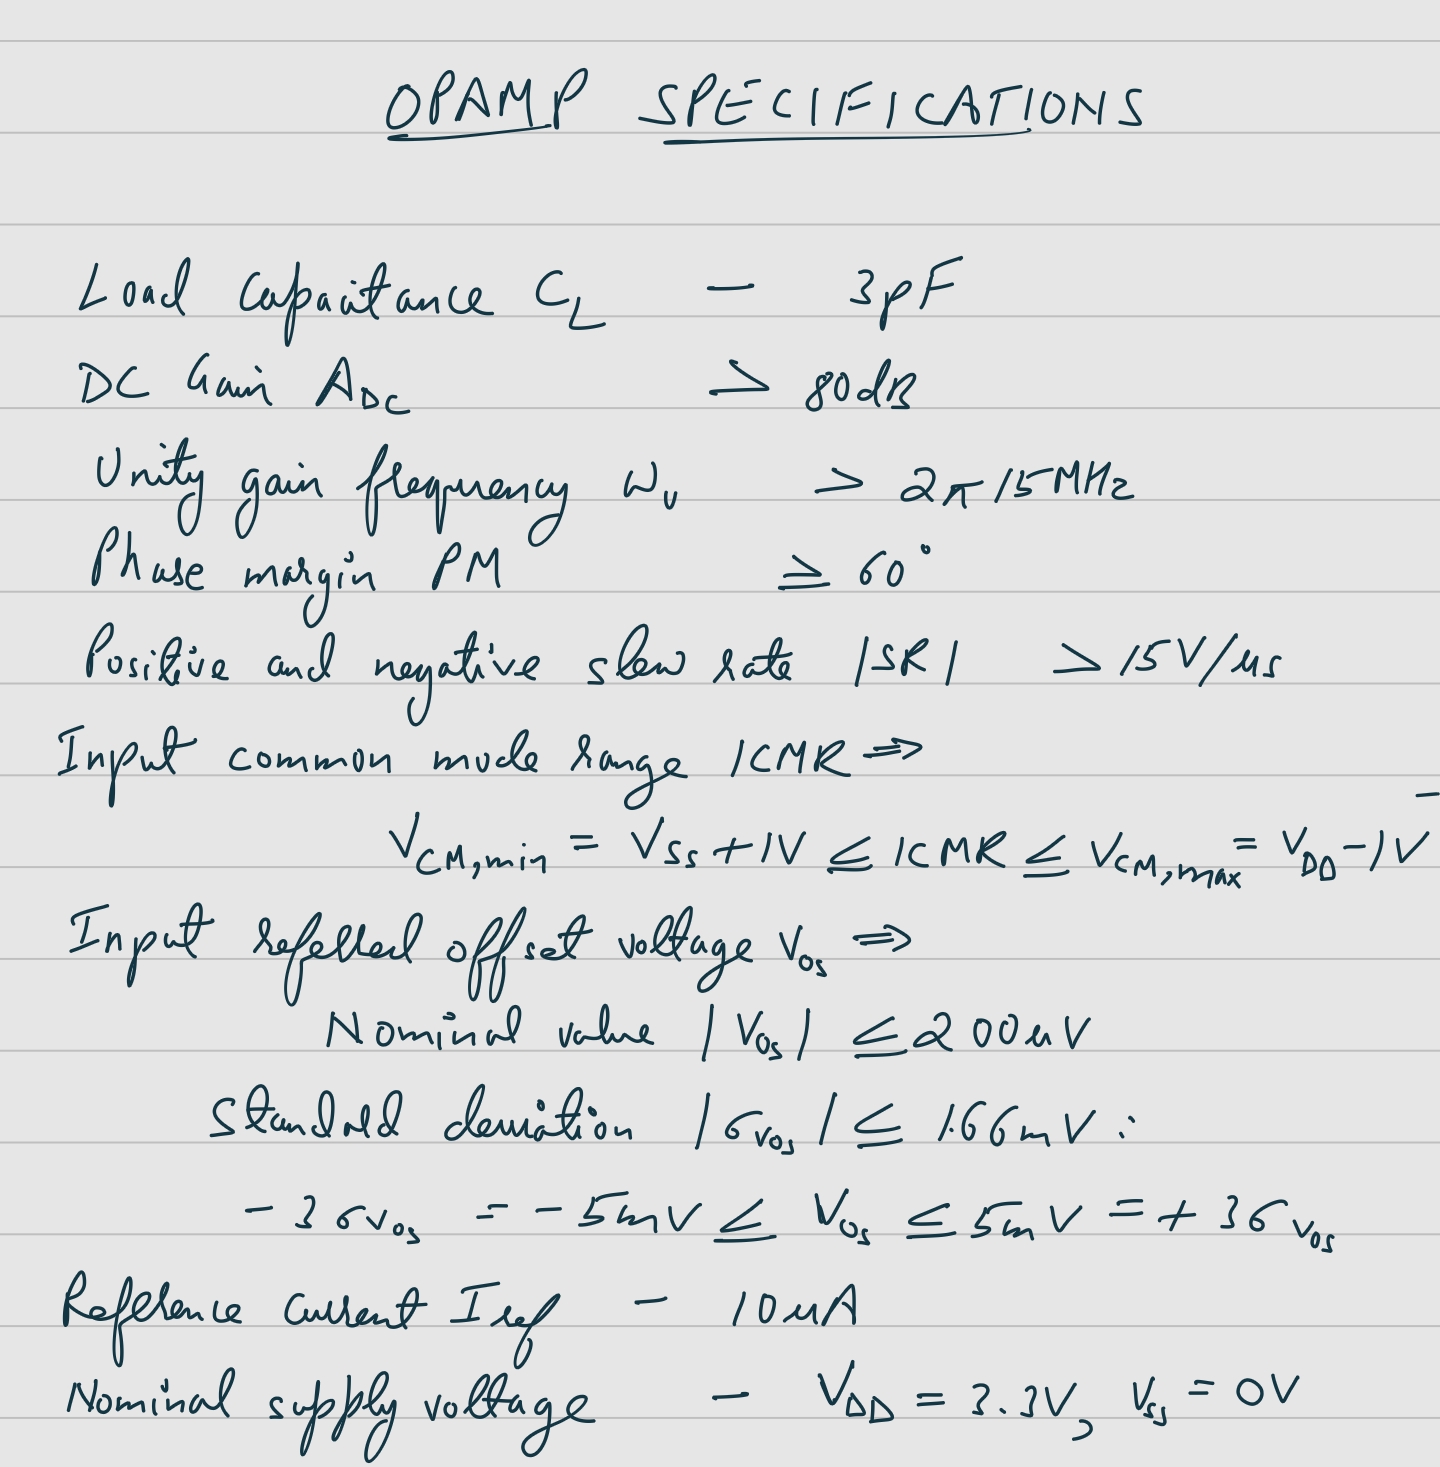 OPAMP SPECIFICATIONS
Load Capacitance C_L - 3pF
DC Gain A_DC > 80dB
Unity gain frequency ω_u > 2π 15MHz
Phase margin PM ≥ 60°
Positive and negative slew rate |SR| > 15V/μs
Input common mode range ICMR ⇒
V_CM,min = V_SS + 1V ≤ ICMR ≤ V_CM,max = V_DD - 1V
Input referred offset voltage V_os ⇒
Nominal value |V_os| ≤ 200μV
Standard deviation |σ_vos| ≤ 1.66mV ∵
-3σ_vos = -5mV ≤ V_os ≤ 5mV = +3σ_vos
Reference current I_ref - 10μA
Nominal supply voltage - V_DD = 3.3V, V_ss = 0V